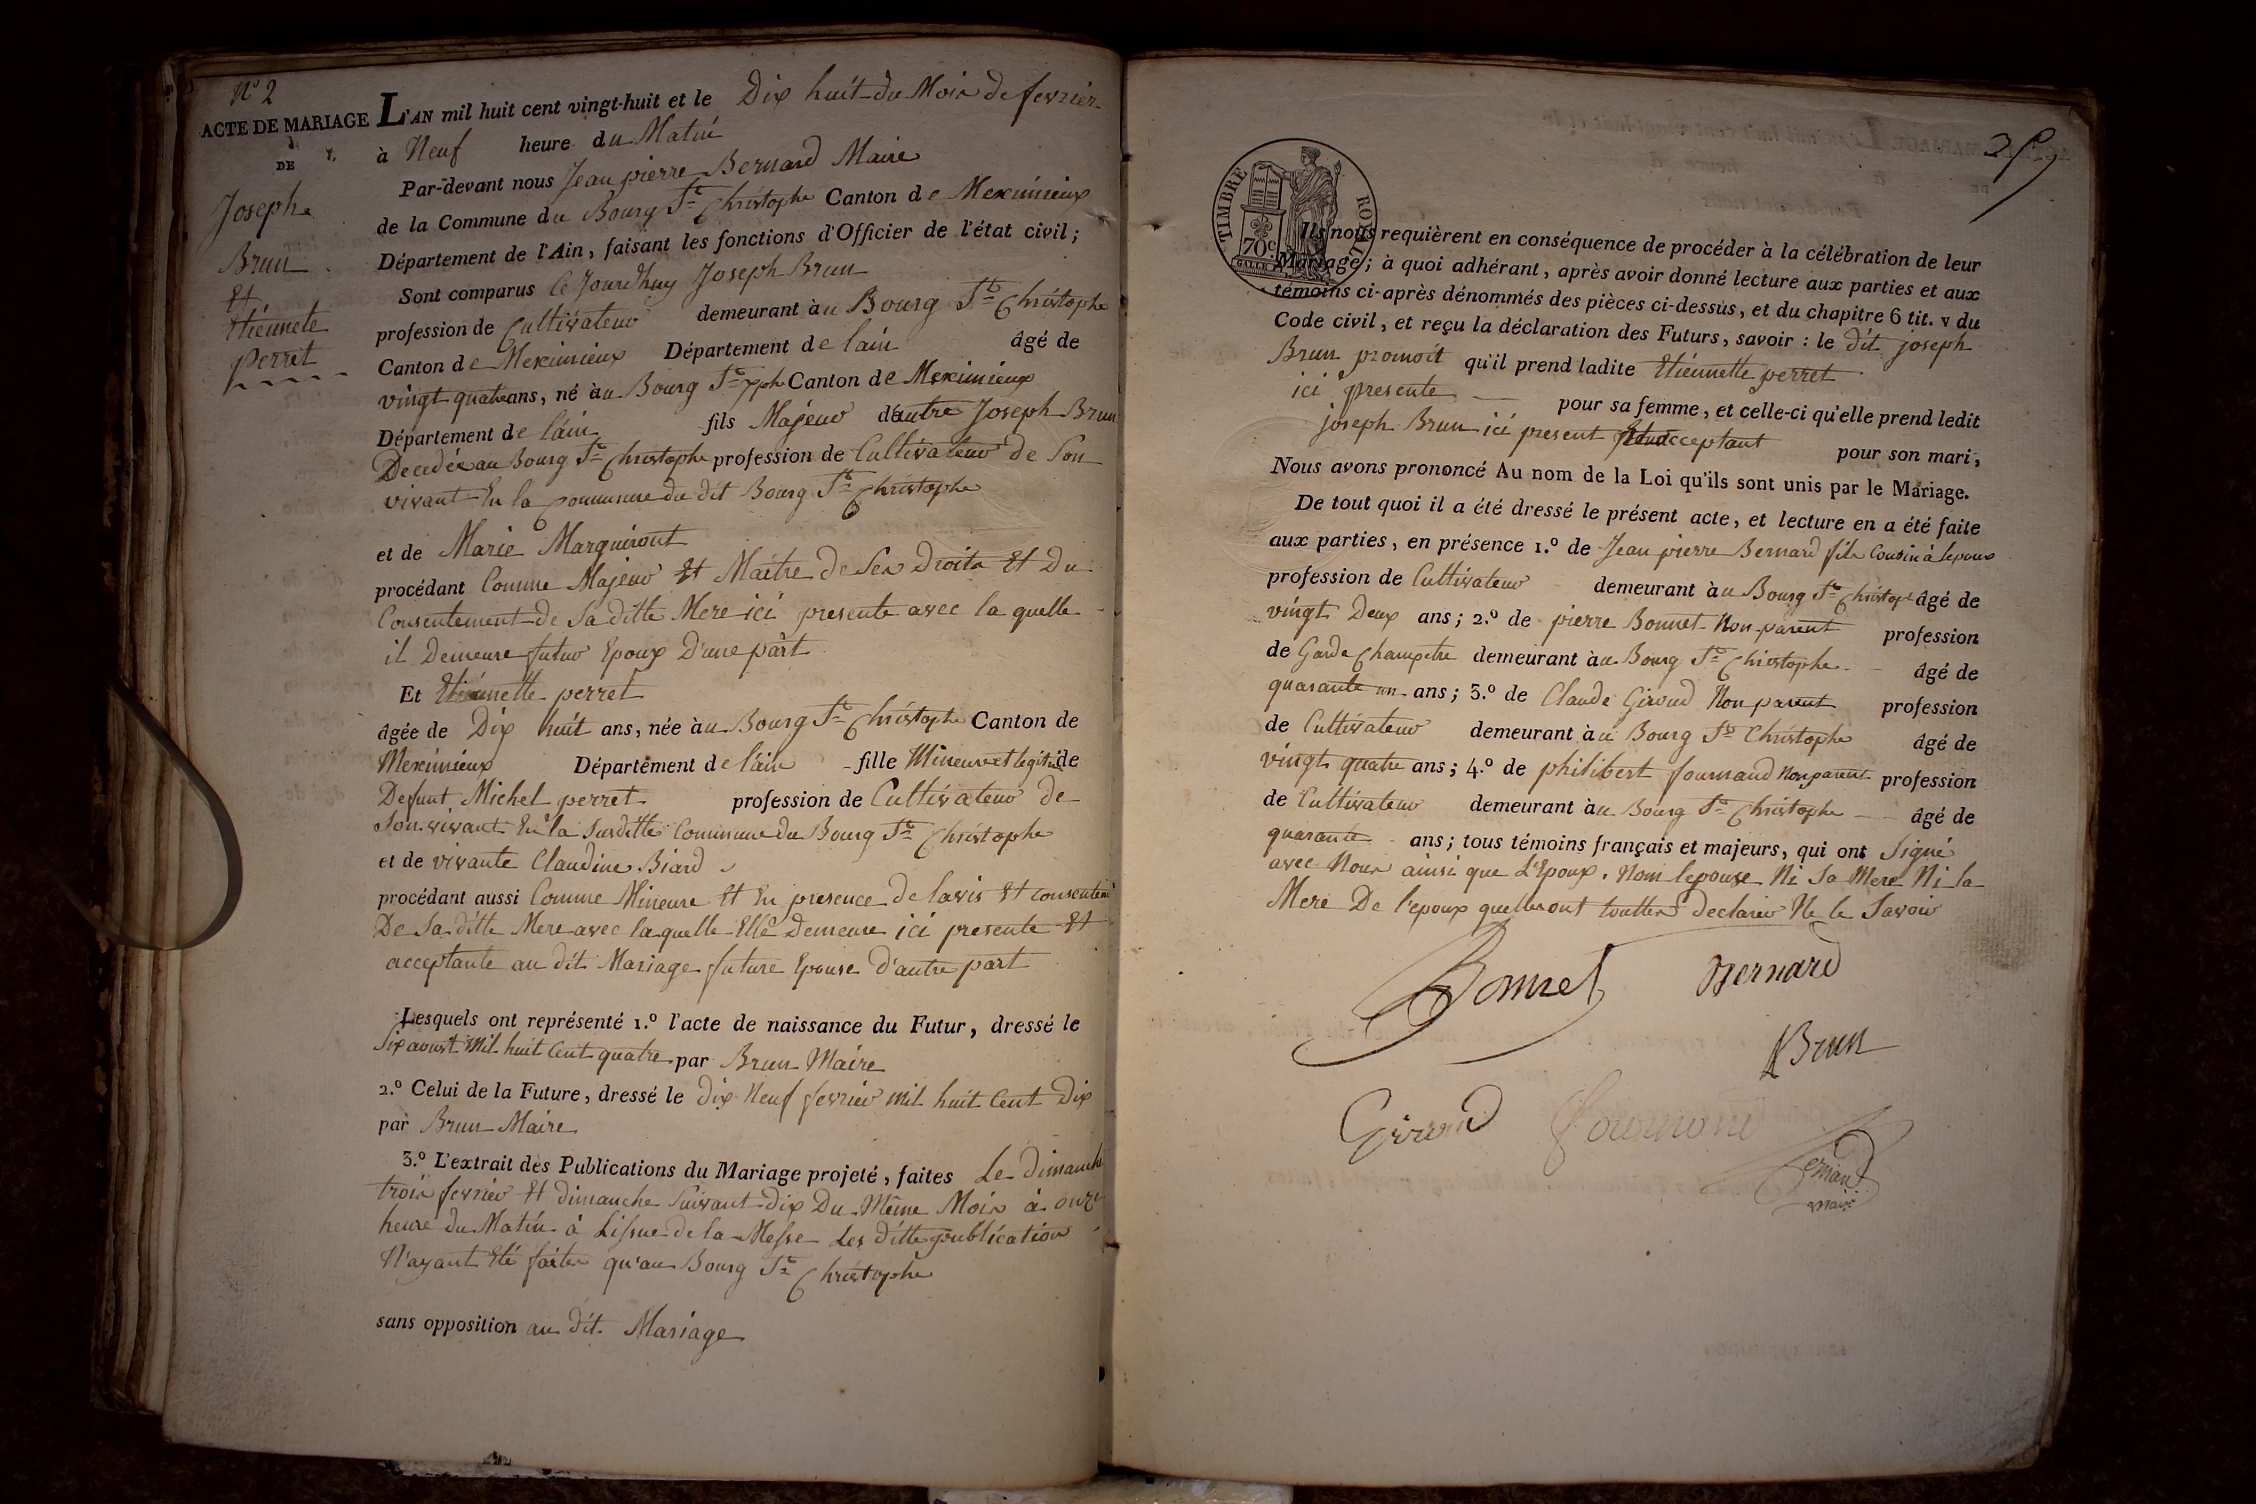 N° 2
ACTE DE MARIAGE
DE
Joseph
Brun
Et
Etiennete
perret
L'AN mil huit cent vingt-huit et le Dix huit du Mois de fevrier
à Neuf heure du Matin
Par-devant nous Jean pierre Bernard Maire
de la Commune du Bourg St Christophe Canton de Meximieux
Département de l'Ain, faisant les fonctions d'Officier de l'état civil;
Sont comparus Ce Jourdhuy Joseph Brun
profession de Cultivateur demeurant au Bourg St Christophe
Canton de Meximieux Département de lain âgé de
vingt quatre ans, né au Bourg St Xphe Canton de Meximieux
Département de lain fils Majeur d'autre Joseph Brun
Decedée au Bourg St Christophe profession de Cultivateur de Son
vivant En la Commune du dit Bourg St Christophe
et de Marie Marguiront
procédant Comme Majeur Et Maitre de Ses Droits Et Du
Consentement de Sa ditte Mere ici presente avec la quelle
il Demeure futur Epoux D'une part
Et Etiennette perret
âgée de Dix huit ans, née au Bourg St Christophe Canton de
Meximieux Département de lain fille Mineure et legitime de
Defunt Michel perret profession de Cultivateur de
Son vivant En la Susditte Commune du Bourg St Christophe
et de vivante Claudine Biard
procédant aussi Comme Mineure Et En presence de lavis Et consentement
De Sa ditte Mere avec laquelle Elle Demeure ici presente Et
acceptante au dit Mariage future Epouse d'autre part
Lesquels ont représenté 1.° l'acte de naissance du Futur, dressé le
Six aoust Mil huit Cent quatre par Brun Maire
2.° Celui de la Future, dressé le Dix Neuf fevrier mil huit Cent Dix
par Brun Maire
3.° L'extrait des Publications du Mariage projeté, faites Le dimanche
trois fevrier Et dimanche Suivant dix Du Même Mois à onze
heure du Matin à Lissue de la Messe Les dittes publications
N'ayant Eté faites qu'au Bourg St Christophe
sans opposition au dit Mariage
TIMBRE ROYAL
70 c.
Ils nous requièrent en conséquence de procéder à la célébration de leur
Mariage; à quoi adhérant, après avoir donné lecture aux parties et aux
témoins ci-après dénommés des pièces ci-dessus, et du chapitre 6 tit. v du
Code civil, et reçu la déclaration des Futurs, savoir : le dit joseph
Brun promoit qu'il prend ladite Etiennette perret
ici presente pour sa femme, et celle-ci qu'elle prend ledit
joseph Brun ici present acceptant pour son mari,
Nous avons prononcé Au nom de la Loi qu'ils sont unis par le Mariage.
De tout quoi il a été dressé le présent acte, et lecture en a été faite
aux parties, en présence 1.° de Jean pierre Bernard fils Cousin à lepoux
profession de Cultivateur demeurant au Bourg St Christophe âgé de
vingt Deux ans; 2.° de pierre Bonnet Non parent profession
de Garde Champetre demeurant au Bourg St Christophe âgé de
quarante un ans; 3.° de Claude Giroud Non parent profession
de Cultivateur demeurant au Bourg St Christophe âgé de
vingt quatre ans; 4.° de philibert fournand Non parent profession
de Cultivateur demeurant au Bourg St Christophe âgé de
quarante ans; tous témoins français et majeurs, qui ont Signé
avec Nous ainsi que L'Epoux. Nom lepouse Ni Sa Mere Ni la
Mere De l'epoux quelles ont touttes declarer Ne le Savoir
Bonnet Bernard
Brun
Girroud
Bernard
maire